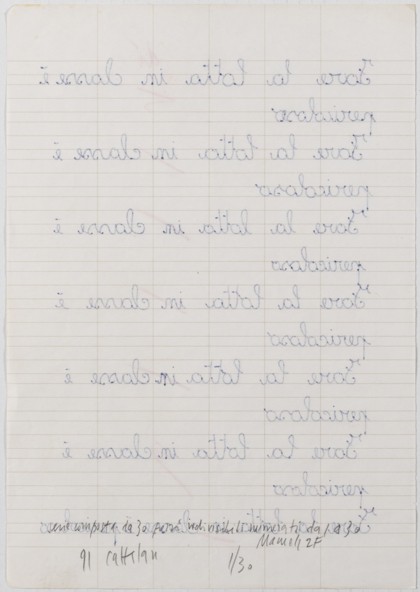 Fare la lotta in classe è
pericoloso
Fare la lotta in classe è
pericoloso
Fare la lotta in classe è
pericoloso
Fare la lotta in classe è
pericoloso
Fare la lotta in classe è
pericoloso
Fare la lotta in classe è
pericoloso
composta da 30 indivisibili numerati da 1 a 30
91 Cattelan 1/30